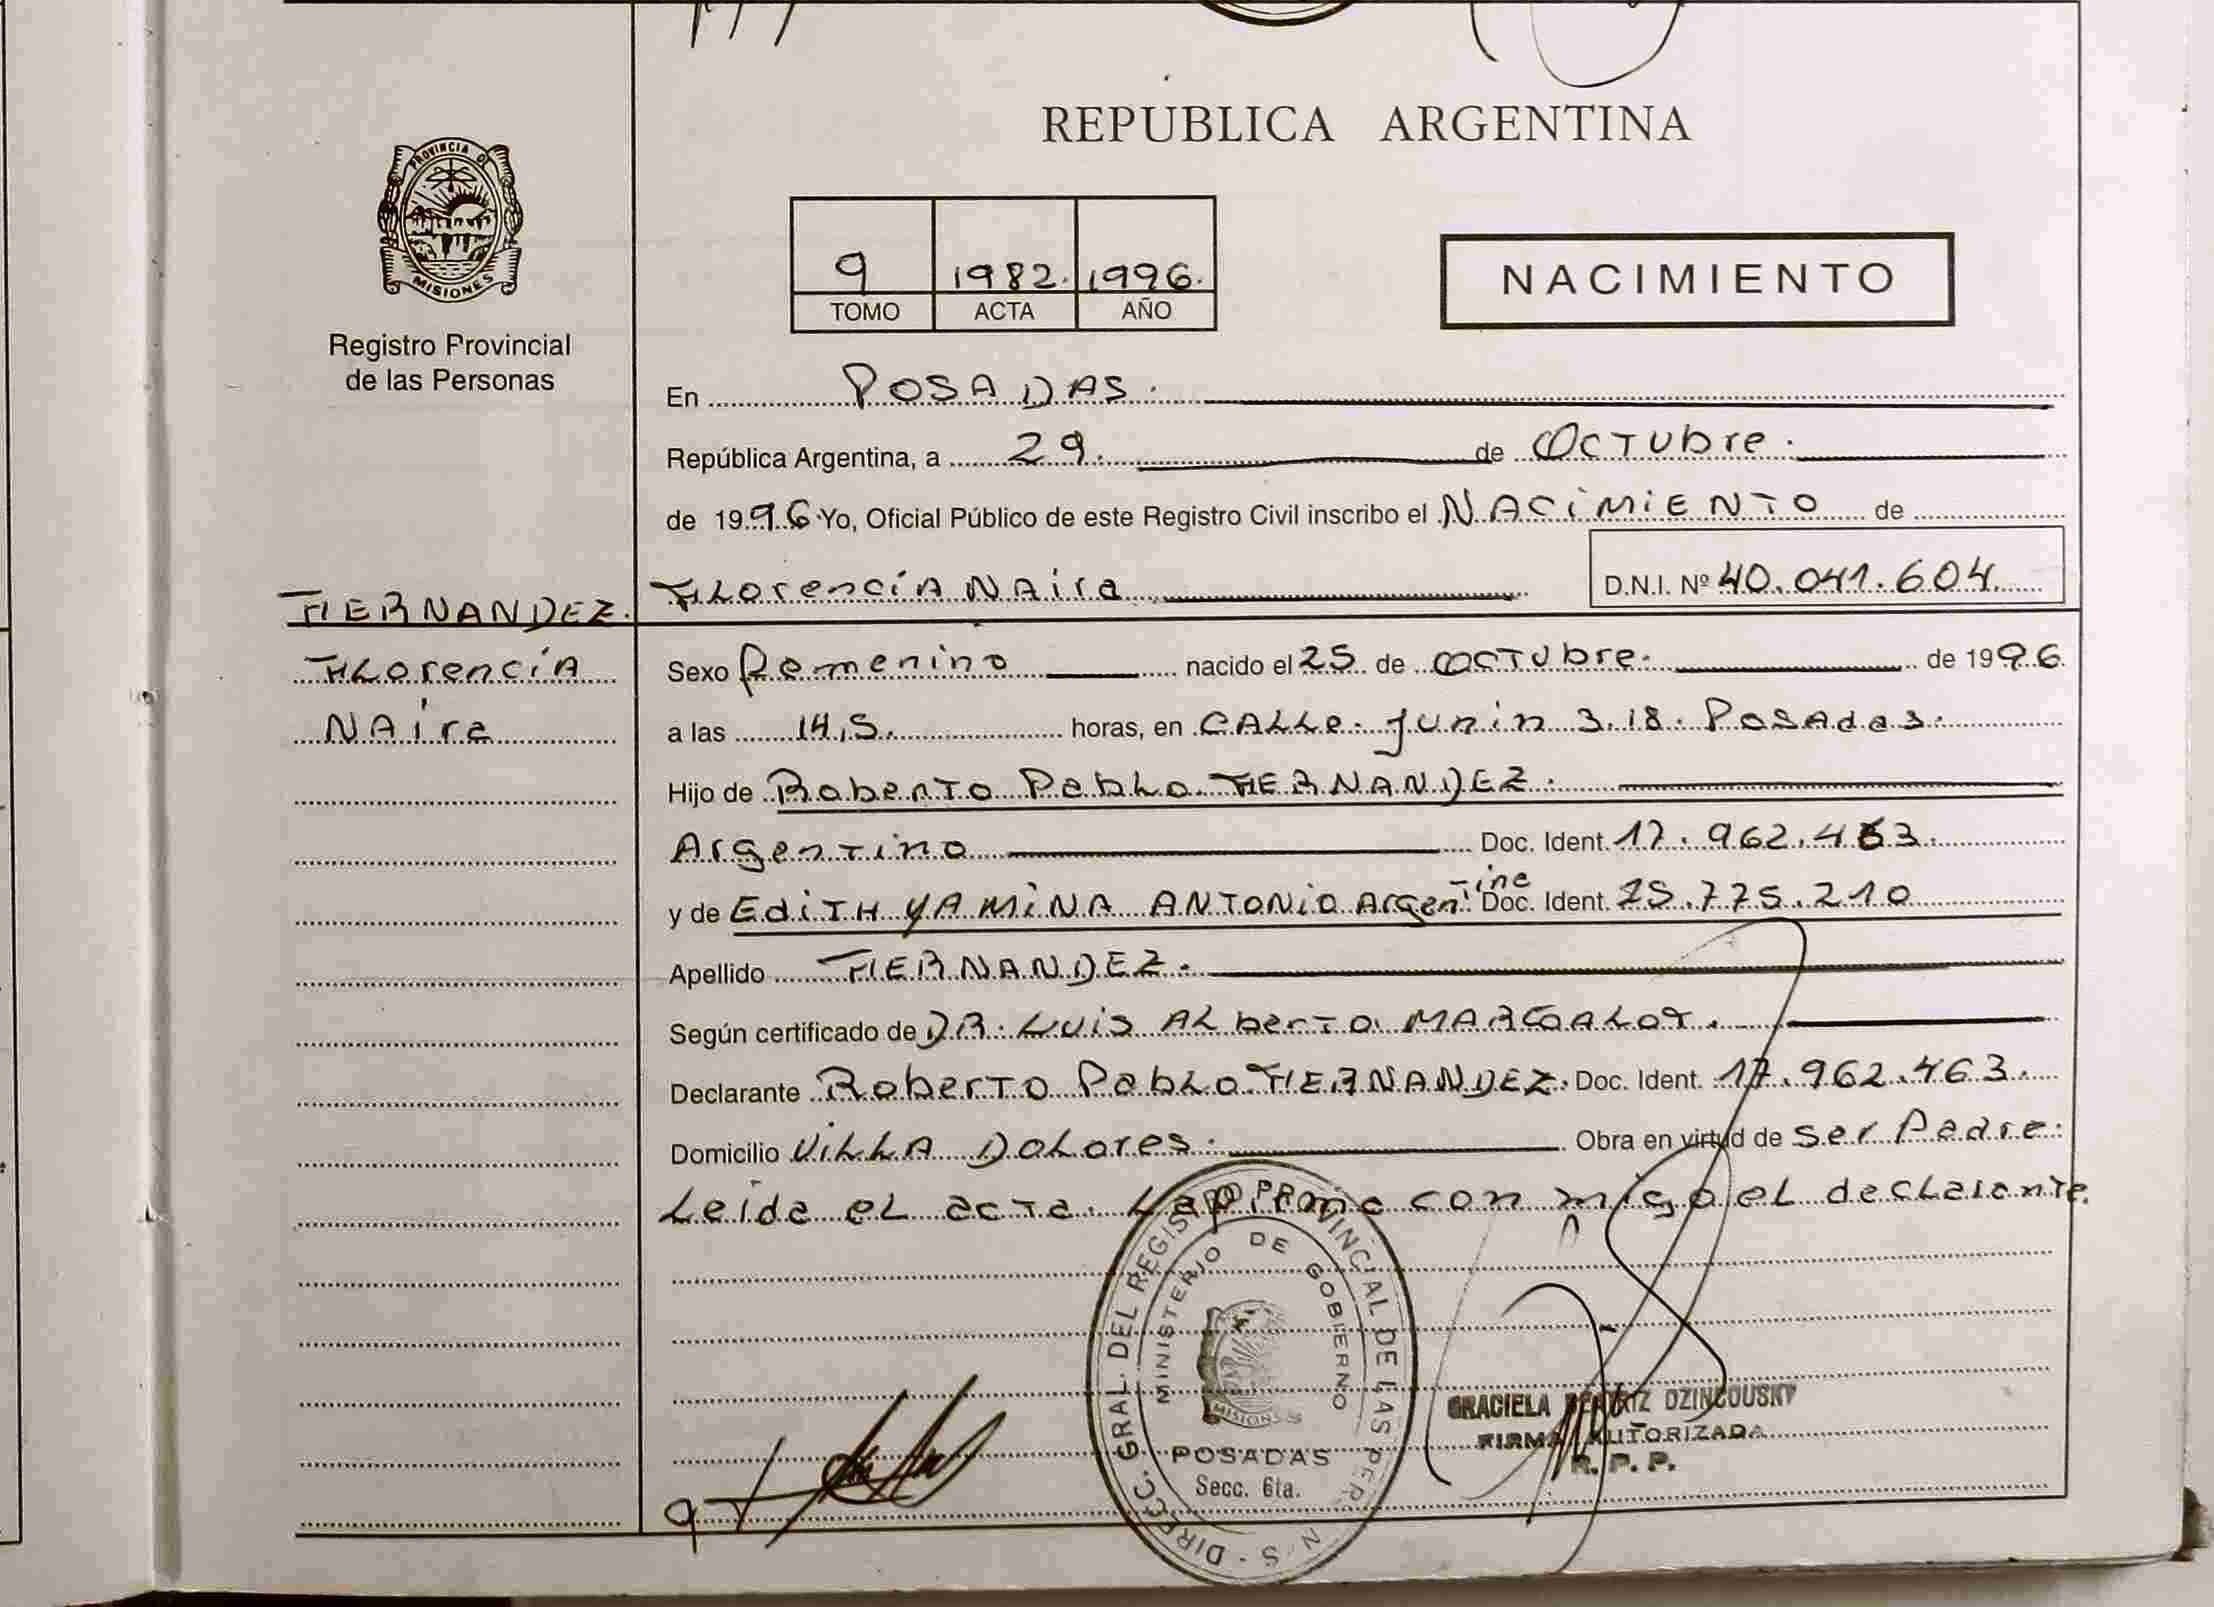 REPUBLICA ARGENTINA
PROVINCIA D
MISIONES
Registro Provincial
de las Personas
9 1982. 1996.
TOMO ACTA AÑO
NACIMIENTO
En POSADAS.
República Argentina, a 29. de Octubre.
de 1996 Yo, Oficial Público de este Registro Civil inscribo el NACIMIENTO de
HERNANDEZ. Florencia Naira D.N.I. Nº 40.041.604.
Florencia
Naira
Sexo Femenino nacido el 25 de octubre. de 1996
a las 14,5. horas, en CALLe Junin 318. Posadas.
Hijo de Roberto Pablo HERNANDEZ.
Argentino Doc. Ident. 17.962.463.
y de Edith YAMINA ANTONIO Argentina Doc. Ident. 25.775.210
Apellido HERNANDEZ.
Según certificado de DR. Luis Alberto
Declarante Roberto Pablo HERNANDEZ. Doc. Ident. 17.962.463.
Domicilio VILLA Dolores. Obra en virtud de ser Padre.
Leida el acta. La firma con migo el declarante.
DIRECC. GRAL. DEL REGISTRO PROVINCIAL DE LAS PER N S
MINISTERIO DE GOBIERNO
MISIONES
POSADAS
Secc. 6ta.
GRACIELA BEATRIZ DZINCOUSKY
FIRMA AUTORIZADA
R. P. P.